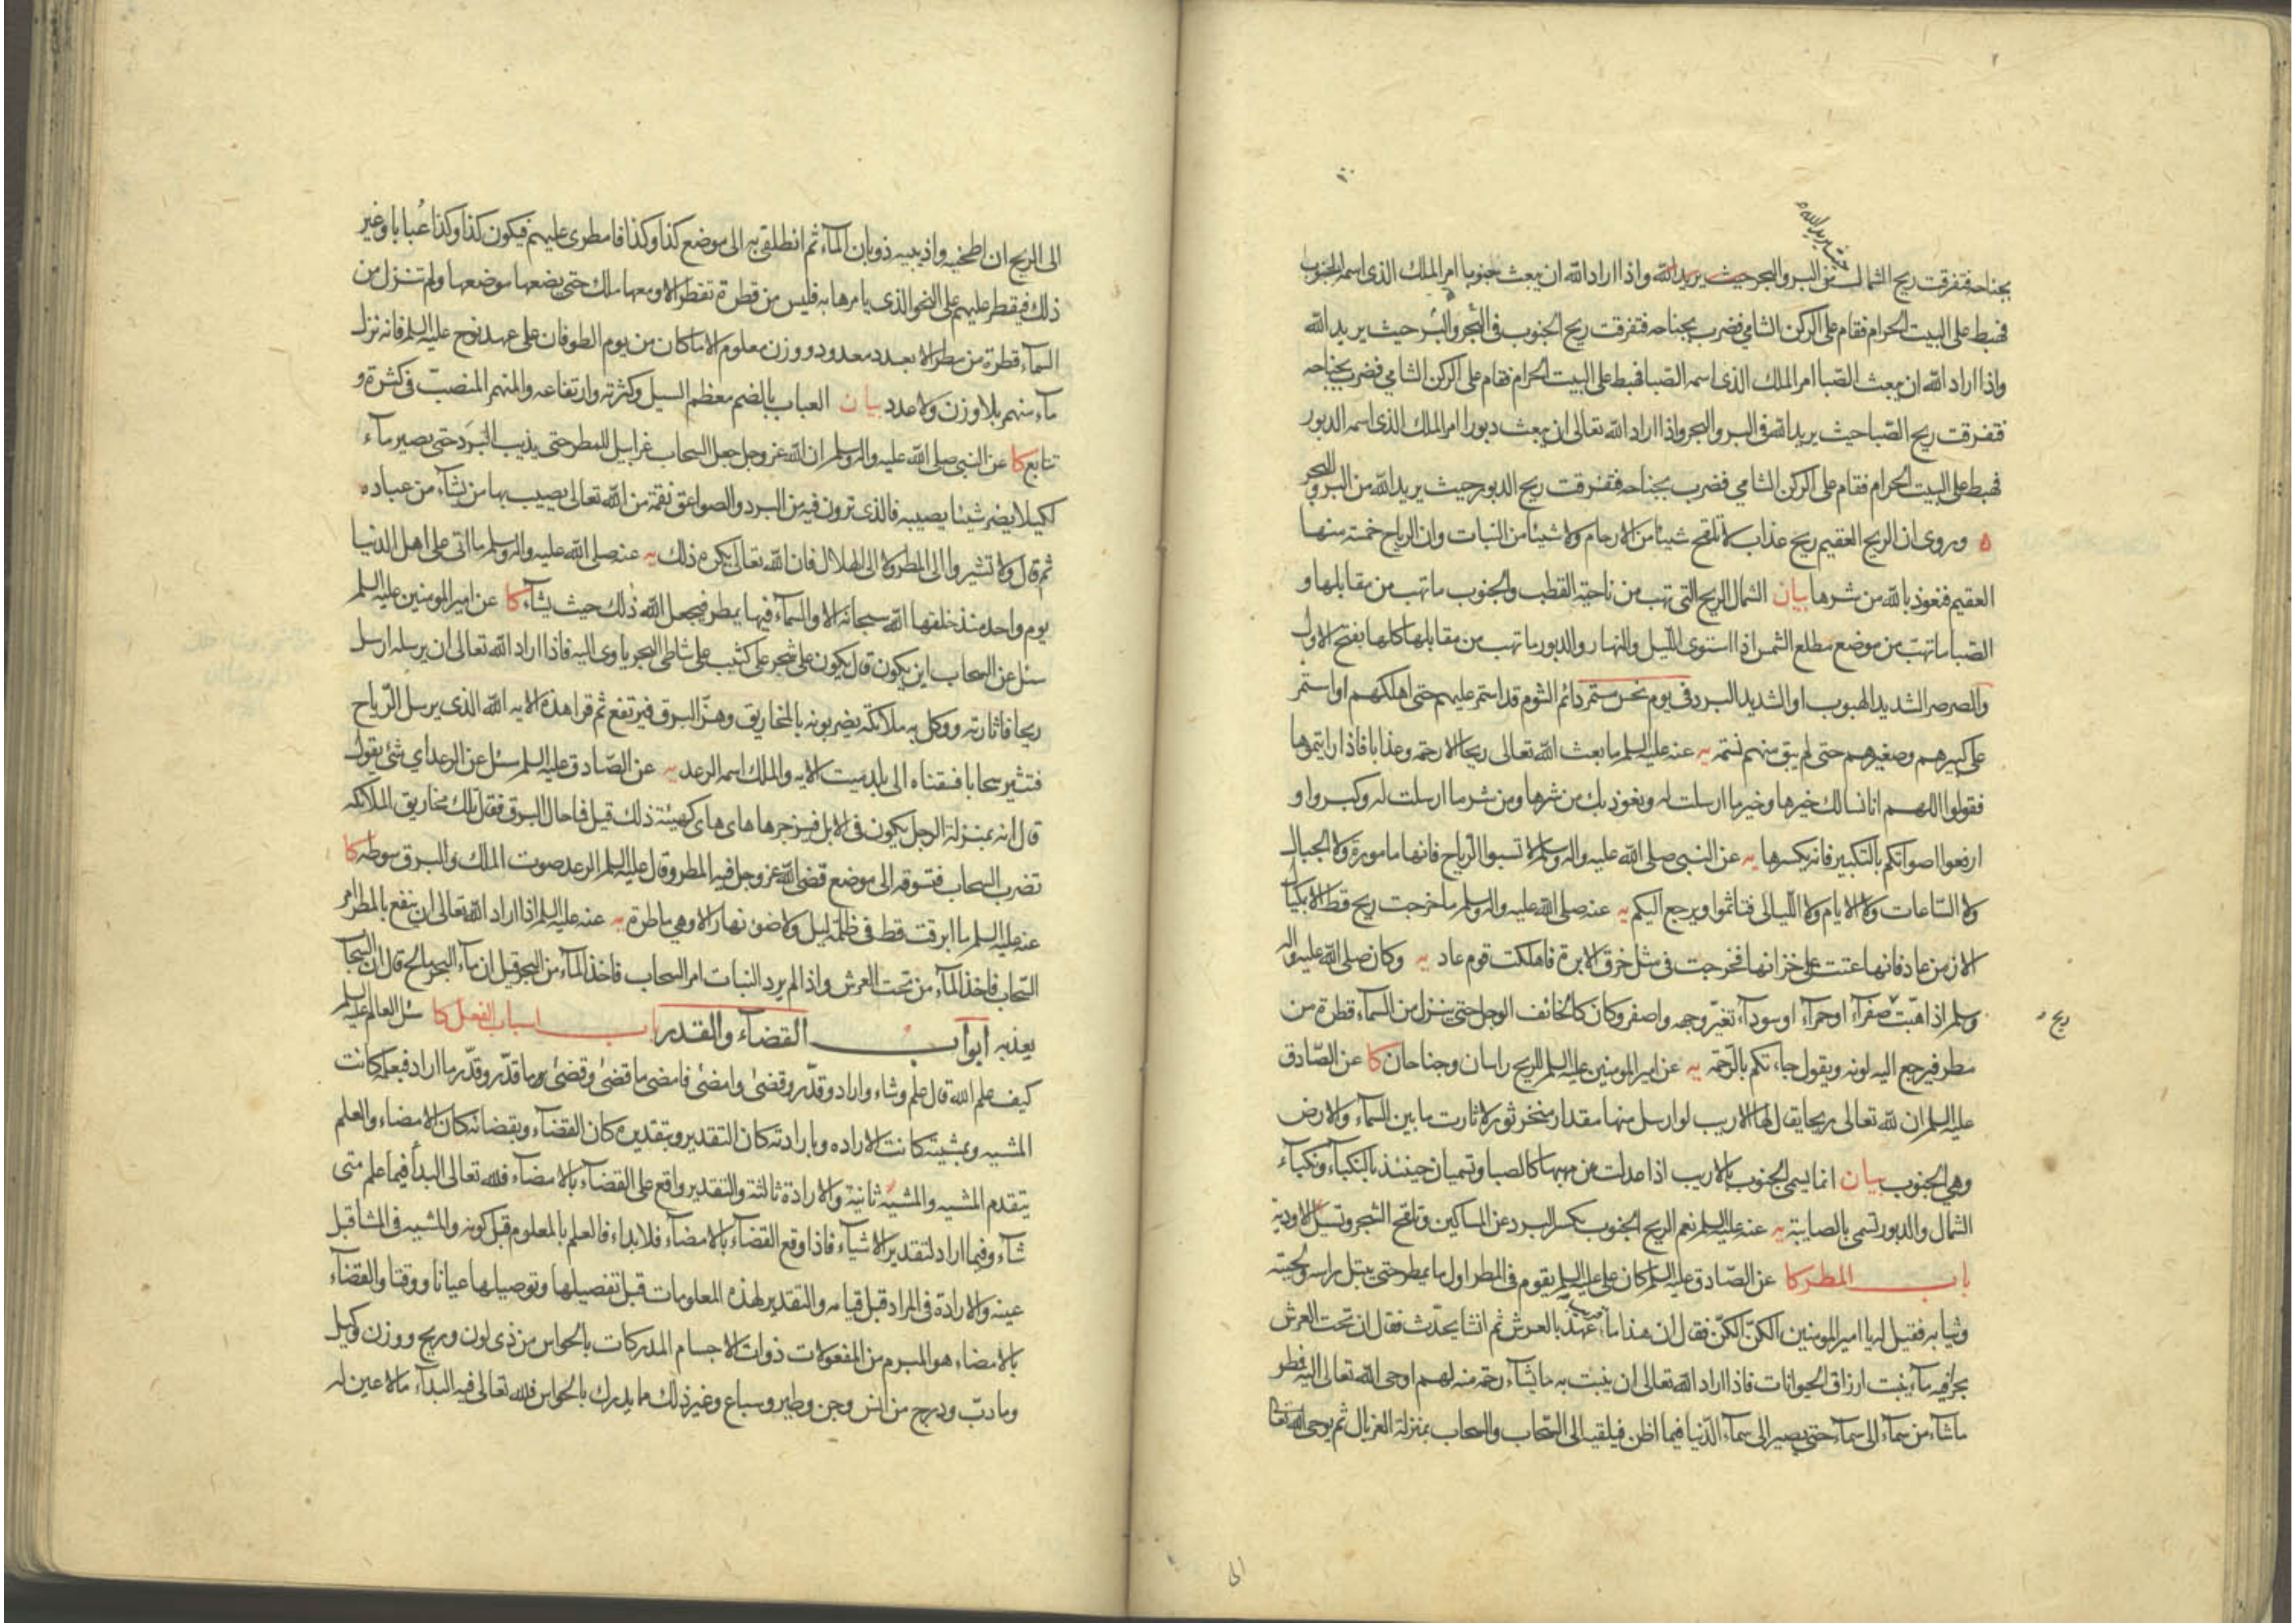 حيث يريد الله
بجناحه فتفرقت ريح الشمال من البر والبحر حيث يريد الله واذا اراد الله ان يبعث جنوبا امر الملك الذى اسمه الجنوب
فهبط على البيت الحرام فقام على الركن الشامي فضرب بجناحه فتفرقت ريح الجنوب فى البحر والبر حيث يريد الله
واذا اراد الله ان يبعث الصبا امر الملك الذى اسمه الصبا فهبط على البيت الحرام فقام على الركن الشامي فضرب بجناحه
فتفرقت ريح الصبا حيث يريد الله فى البر والبحر واذا اراد الله تعالى ان يبعث دبورا امر الملك الذى اسمه الدبور
فهبط على البيت الحرام فقام على الركن الشامي فضرب بجناحه فتفرقت ريح الدبور حيث يريد الله من البر والبحر
ه وروى ان الريح العقيم ريح عذاب لا تلقح شيئا من الارحام ولا شيئا من النبات وان الرياح خمسة منها
العقيم فنعوذ بالله من شرها بيان الشمال الريح التى تهب من ناحية القطب والجنوب ما تهب من مقابلها و
الصبا ما تهب من موضع مطلع الشمس اذا استوى الليل والنهار والدبور ما تهب من مقابلها كلها بفتح الاول
والصرصر الشديد الهبوب او الشديد البرد فى يوم نحس مستمر دائم الشوم قد استمر عليهم حتى اهلكهم او استمر
على كبيرهم وصغيرهم حتى لم يبق منهم نسمه يه عنه عليه السلم ما بعث الله تعالى ريحا الا رحمة وعذابا فاذا رايتموها
فقولوا اللهم انا نسالك خيرها وخير ما ارسلت له ونعوذ بك من شرها ومن شر ما ارسلت له وكبروا و
ارفعوا اصواتكم بالتكبير فانه يكسرها يه عن النبى صلى الله عليه واله وسلم لا تسبوا الرياح فانها مامورة ولا الجبال
ولا الساعات ولا الايام ولا الليالى فتاثموا ويرجع اليكم يه عنه صلى الله عليه واله وسلم ما خرجت ريح قط الا بكيال
الا زمن عاد فانها عتت على خزانها فخرجت فى مثل خرق الابرة فاهلكت قوم عاد يه وكان صلى الله عليه واله
وسلم اذا هبت صفرآء او حمرآء او سودآء تغير وجهه واصفر وكان كالخائف الوجل حتى ينزل من السمآء قطرة من
ريح
مطر فيرجع اليه لونه ويقول جاءتكم بالرحمة يه عن امير المومنين عليه السلم للريح راسان وجناحان كا عن الصادق
عليه السلم ان لله تعالى ريحا يقال لها الازيب لو ارسل منها مقدار منخر ثور لاثارت ما بين السمآء والارض
وهى الجنوب بيان انما يسمى الجنوب بالازيب اذا عدلت من مهبها كالصبا وتسميان حينئذ بالنكباء ونكباء
الشمال والدبور تسمى بالصابية يه عنه عليه السلم نعم الريح الجنوب تكسر البرد عن المساكين وتلقح الشجر وتسيل الاودية
باب المطر كا عن الصادق عليه السلم كان على عليه السلم يقوم فى المطر اول ما يمطر حتى يبتل راسه ولحيته
وثيابه فقيل له يا امير المومنين الكن الكن فقال ان هذا مآء قريب عهد بالعرش ثم انشا يحدث فقال ان تحت العرش
بحرا فيه مآء ينبت ارزاق الحيوانات فاذا اراد الله تعالى ان ينبت به ما يشآء رحمة منه لهم اوحى الله تعالى اليه فطر
ما شآء من سمآء الى سمآء حتى يصير الى سمآء الدنيا فيما اظن فيلقيه الى السحاب والسحاب بمنزلة الغربال ثم يوحى الله تعالى
الى
الى الريح ان اطحنيه واذيبيه ذوبان المآء ثم انطلقى به الى موضع كذا وكذا فامطرى عليهم فيكون كذا وكذا عبابا وغير
ذلك فيقطر عليهم على النحو الذى يامرها به فليس من قطرة تقطر الا ومعها ملك حتى يضعها موضعها ولم تنزل من
السمآء قطرة من مطر الا بعدد معدود ووزن معلوم الا ما كان من يوم الطوفان على عهد نوح عليه السلم فانه نزل
مآء منهمر بلا وزن ولا عدد بيان العباب بالضم معظم السيل وكثرته وارتفاعه والمنهمر المنصب فى كثرة و
تتابع كا عن النبى صلى الله عليه واله وسلم ان الله عز وجل جعل السحاب غرابيل للمطر حتى يذيب البرد حتى يصير مآء
لكيلا يضر شيئا يصيبه فالذى ترون فيه من البرد والصواعق نقمة من الله تعالى يصيب بها من يشآء من عباده
ثم قال ولا تشيروا الى المطر ولا الى الهلال فان الله تعالى يكره ذلك يه عنه صلى الله عليه واله وسلم ما اتى على اهل الدنيا
يوم واحد منذ خلقها الله سبحانه الا والسمآء فيها يمطر فيجعل الله ذلك حيث يشآء كا عن امير المومنين عليه السلم
سئل عن السحاب اين يكون قال يكون على شجر على كثيب على شاطى البحر ياوى اليه فاذا اراد الله تعالى ان يرسله ارسل
ريحا فاثارته ووكل به ملائكة يضربونه بالمخاريق وهو البرق فيرتفع ثم قرا هذه الايه الله الذى يرسل الرياح
فتثير سحابا فسقناه الى بلد ميت الايه والملك اسمه الرعد يه عن الصادق عليه السلم سئل عن الرعد اي شئ يقول
قال انه بمنزلة الرجل يكون فى الابل فيزجرها هاى هاى كهيئة ذلك قيل فما حال البرق فقال تلك مخاريق الملآئكه
تضرب السحاب فتسوقه الى موضع قضى الله عز وجل فيه المطر وقال عليه السلم الرعد صوت الملك والبرق سوطه كا
عنه عليه السلم ما ابرقت قط فى ظلمة ليل ولا ضوء نهار الا وهى ماطرة يه عنه عليه السلم اذا اراد الله تعالى ان ينفع بالمطر امر
السحاب فاخذ المآء من تحت العرش واذا لم يرد النبات امر السحاب فاخذ المآء من البحر قيل ان مآء البحر مالح قال ان السحاب
يعذبه ابواب القضآء والقدر باب اسباب الفعل كا سئل العالم عليه السلم
كيف علم الله قال علم وشاء واراد وقدر وقضى وامضى فامضى ما قضى وقضى ما قدر وقدر ما اراد فبعلمه كانت
المشيه وبمشيته كانت الاراده وبارادته كان التقدير وبتقديره كان القضآء وبقضائه كان الامضاء والعلم
يتقدم المشيه والمشية ثانية والارادة ثالثة والتقدير واقع على القضآء بالامضآء فلله تعالى البدآ فيما علم متى
شآء وفيما اراد لتقدير الاشيآء فاذا وقع القضآء بالامضآء فلا بداء فالعلم بالمعلوم قبل كونه والمشيه فى المشا قبل
عينه والارادة فى المراد قبل قيامه والتقدير لهذه المعلومات قبل تفصيلها وتوصيلها عيانا ووقتا والقضآء
بالامضاء هو المبرم من المفعولات ذوات الاجسام المدركات بالحواس من ذى لون وريح ووزن وكيل
وما دب ودرج من انس وجن وطير وسباع وغير ذلك مما يدرك بالحواس فلله تعالى فيه البدآء مالا عين له